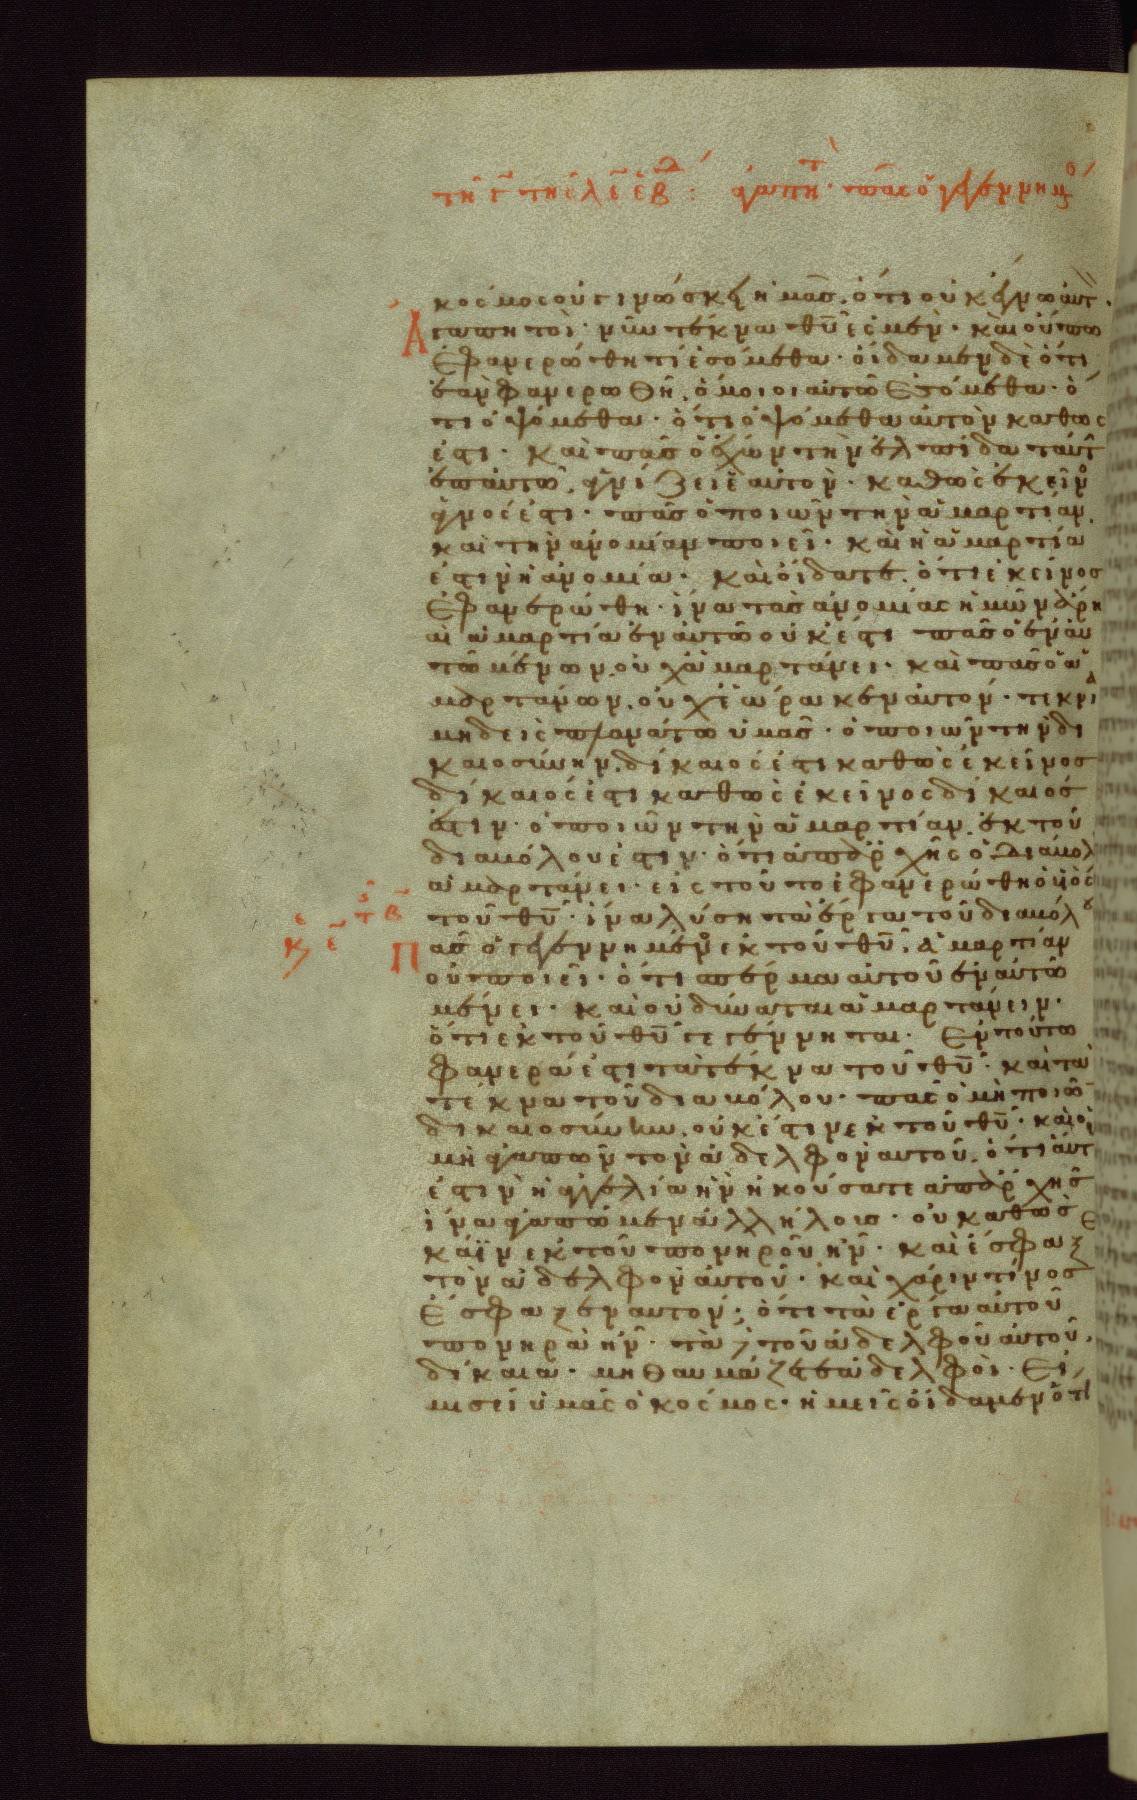 τῆ ε̄ τῆς λ̄ε̄ ἑβδ: ἀγαπητ. πᾶς ὁ γεγεννημο
κόσμος οὐ γινώσκει ἡμᾶς. ὅτι οὐκ ἔγνω αὐτ.
Ἀγαπητοὶ. νῦν τέκνα θῦ ἐσμεν. καὶ οὔπω
ἐφανερώθη τί ἐσόμεθα. οἴδαμεν δὲ ὅτι
ἐὰν φανερωθῆ. ὅμοιοι αὐτῶ ἐσόμεθα. ὅ
τι ὀψόμεθα. ὅτι ὀψόμεθα αὐτὸν καθώς
ἐστι. καὶ πᾶς ὁ ἔχων τὴν ἐλπίδα ταύτ
ἐπ αὐτῶ. ἁγνίζει ἑαυτόν. καθὼς ἐκεῖν
ἁγνός ἐστι. πᾶς ὁ ποιῶν τὴν ἁμαρτίαν.
καὶ τὴν ἀνομίαν ποιεῖ. καὶ ἡ ἁμαρτία
ἐστιν ἡ ἀνομία. καὶ οἴδατε. ὅτι ἐκεῖνος
ἐφανερώθη. ἵνα τὰς ἀνομίας ἡμῶν ἄρη
αι ἁμαρτία ἐν αὐτῶ οὐκ ἔστι πᾶς ὁ ἐν αυ
τῶ μένων. οὐχ ἁμαρτάνει. καὶ πᾶς ὁ ἁ
μαρτάνων. οὐχ ἑώρακεν αὐτόν. τεκνία
μηδεὶς πλανάτω ὑμᾶς. ὁ ποιῶν τὴν δι
καιοσύνην. δίκαιός ἐστι καθὼς ἐκεῖνος
δίκαιός ἐστι καθὼς ἐκεῖνος δίκαιός
ἐστιν. ὁ ποιῶν τὴν ἁμαρτίαν. ἐκ τοῦ
διαβόλου ἐστιν. ὅτι ἀπαρχῆς ὁ διάβολ
ἁμαρτάνει. εἰς τοῦτο ἐφανερώθη ὁ υἱὸς
τοῦ θῦ. ἵνα λύση τὰ ἔργα τοῦ διαβόλου
Πᾶς ὁ γεγεννημένος ἐκ τοῦ θῦ. ἁμαρτίαν
οὐ ποιεῖ. ὅτι σπέρμα αὐτοῦ ἐν αὐτῶ
μένει. καὶ οὐ δύναται ἁμαρτάνειν.
ὅτι ἐκ τοῦ θῦ γεγέννηται. Ἐν τούτω
φανερά ἐστι τὰ τέκνα τοῦ θῦ. καὶ τὰ
τέκνα τοῦ διαβόλου. πᾶς ὁ μὴ ποιῶ
δικαιοσύνην. οὐκ ἔστιν ἐκ τοῦ θῦ. καὶ ὁ
μὴ ἀγαπῶν τὸν ἀδελφὸν αὐτοῦ. ὅτι αὐτ
ἐστιν ἡ ἀγγελία ἣν ἠκούσατε ἀπαρχῆς
ἵνα ἀγαπῶμεν ἀλλήλους. οὐ καθὼς
κάϊν ἐκ τοῦ πονηροῦ ἦν. καὶ ἔσφαξε
τὸν ἀδελφὸν αὐτοῦ. καὶ χάριν τίνος
ἔσφαξεν αὐτόν; ὅτι τὰ ἔργα αὐτοῦ
πονηρὰ ἦν. τὰ δὲ τοῦ ἀδελφοῦ αὐτοῦ.
δίκαια. μὴ θαυμάζετε ἀδελφοὶ. Εἰ
μισεῖ ὑμᾶς ὁ κόσμος. ἡμεῖς οἴδαμεν ὅτι